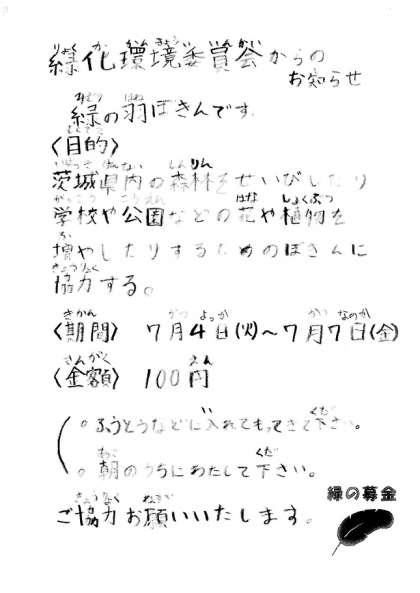 緑化環境委員会からの
お知らせ
緑の羽ぼきんです。
〈目的〉
茨城県内の森林をせいびしたり
学校や公園などの花や植物を
増やしたりするためのぼきんに
協力する。
〈期間〉 7月4日(火)~7月7日(金)
〈金額〉 100円
。ふうとうなどに入れてもってきて下さい。
。朝のうちにわたして下さい。
緑の募金
ご協力お願いいたします。